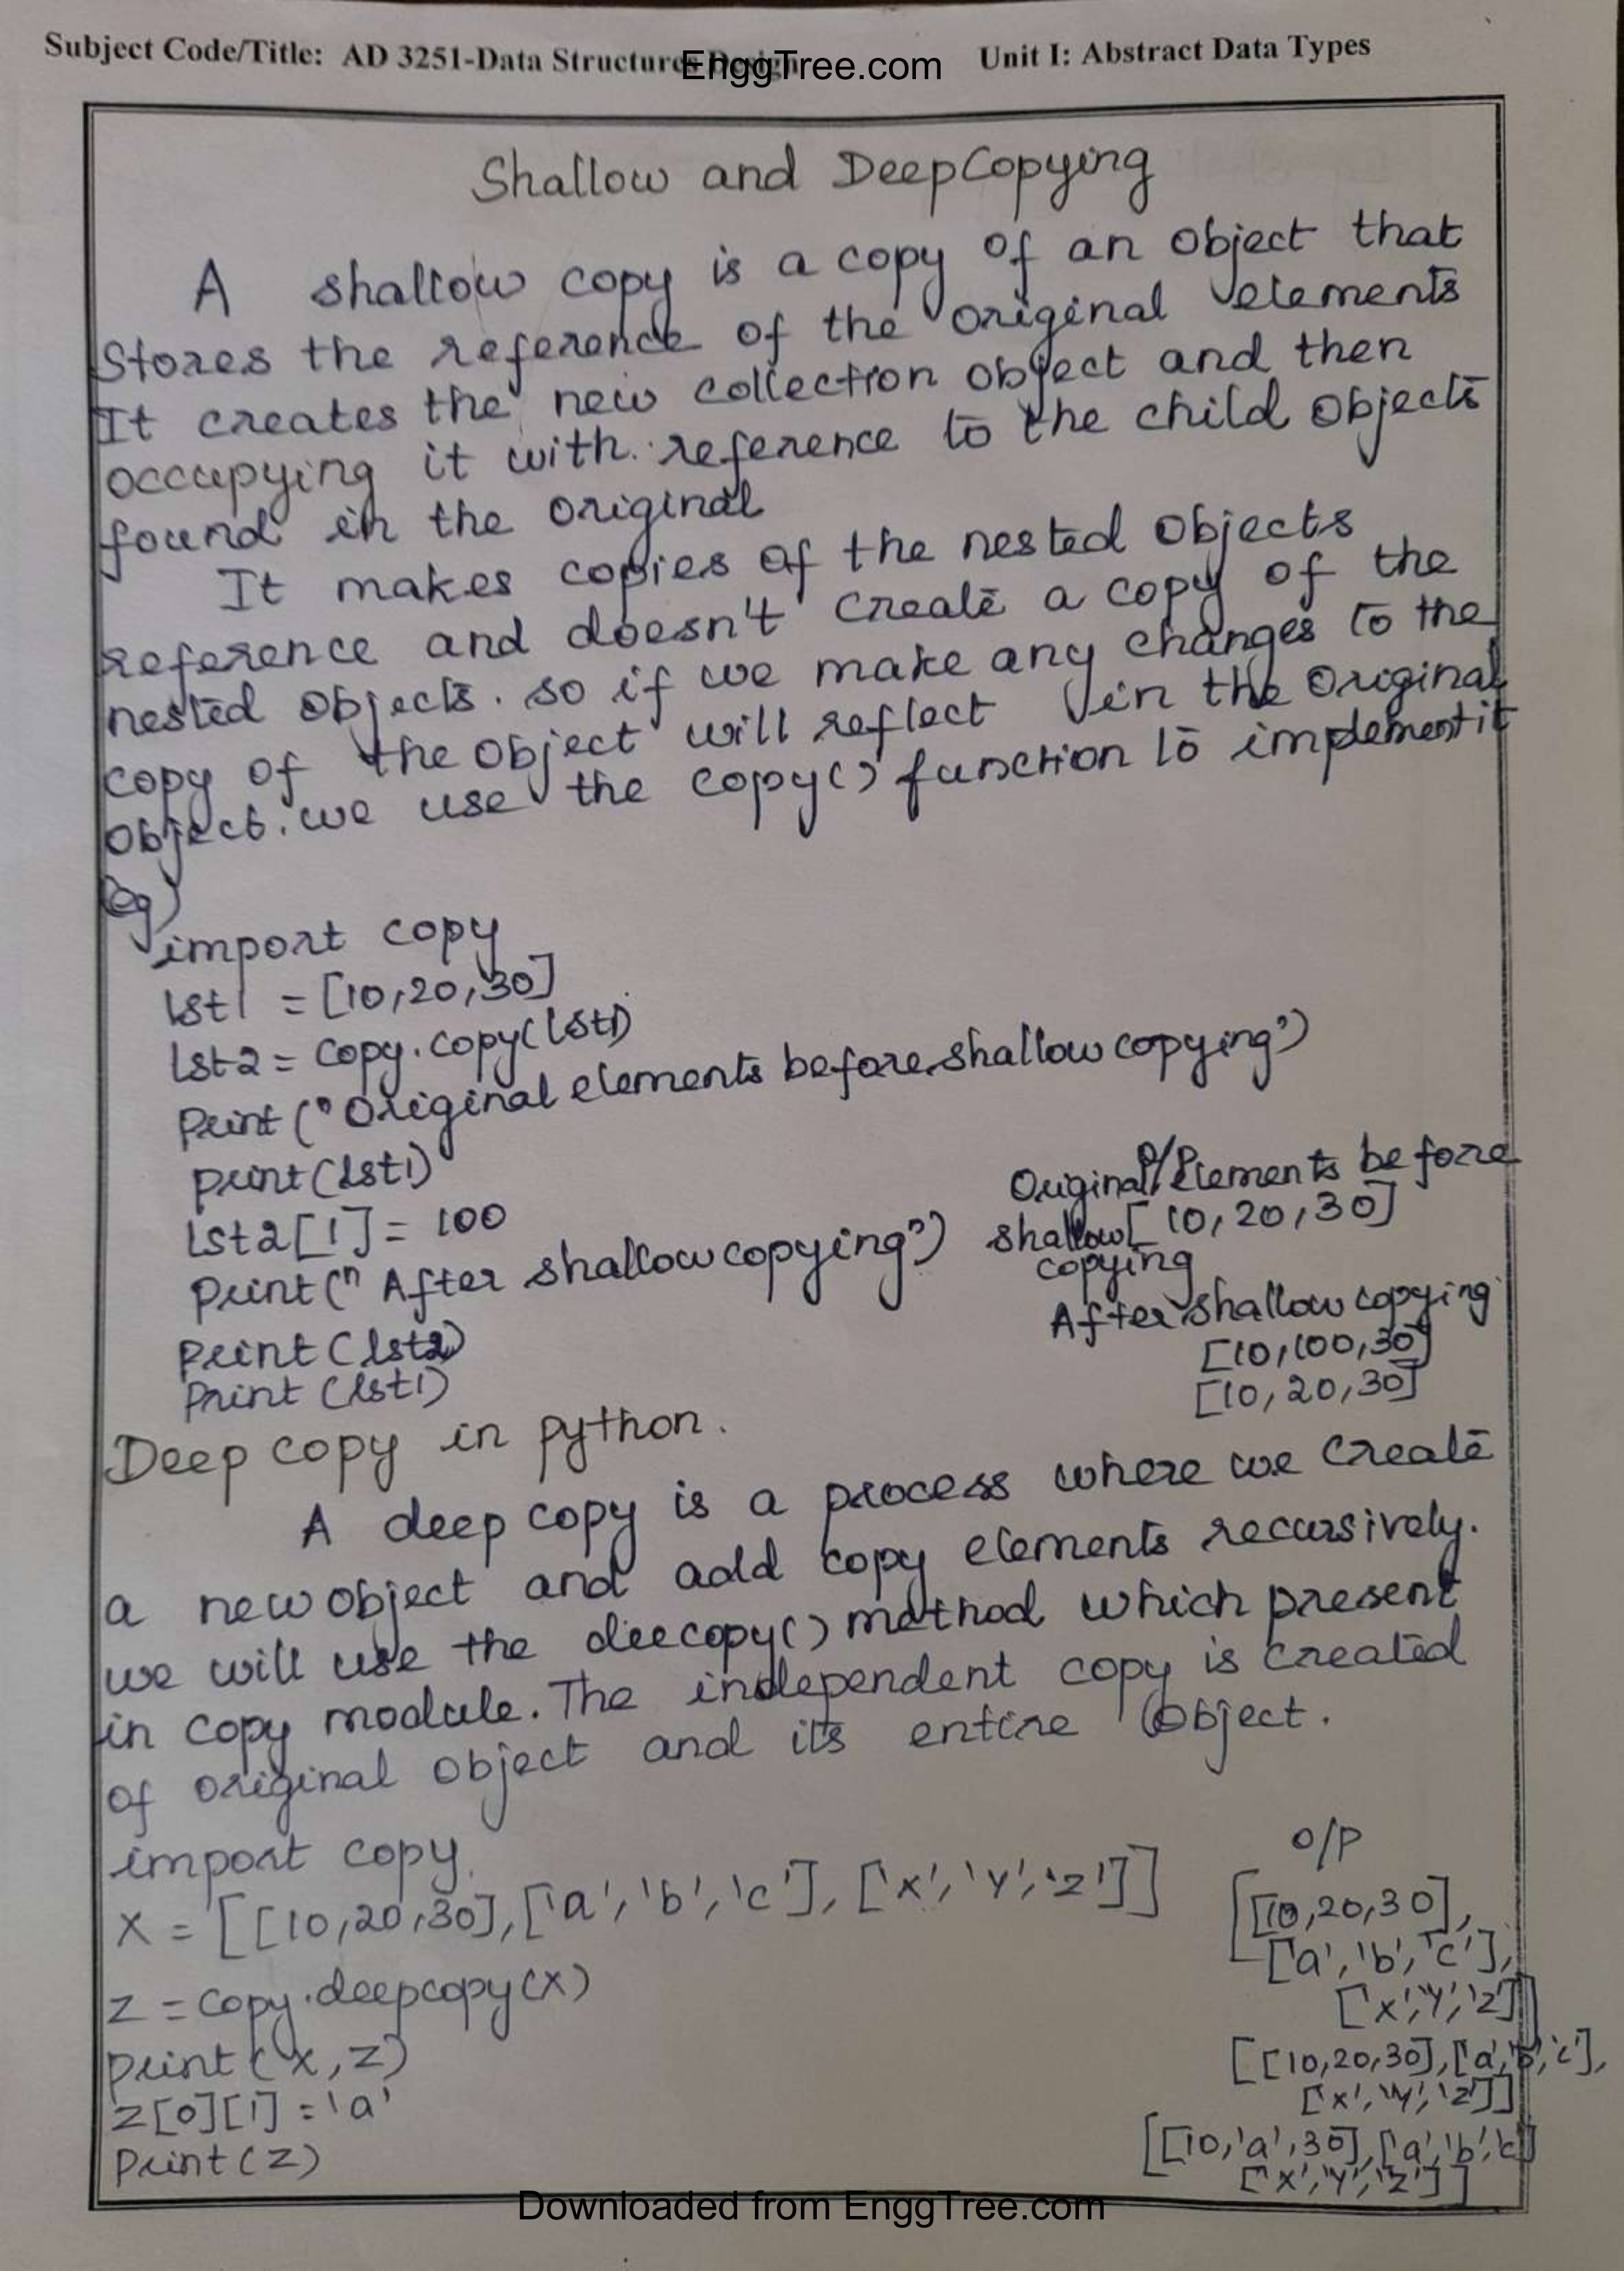 Subject Code/Title: AD 3251-Data Structures Design
EnggTree.com
Unit I: Abstract Data Types
Shallow and DeepCopying
A shallow copy is a copy of an object that
stores the reference of the original elements
It creates the new collection object and then
occupying it with reference to the child objects
found in the original
It makes copies of the nested objects
reference and doesn't create a copy of the
nested objects. so if we make any changes to the
copy of the object will reflect in the original
object. we use the copy() function to implement it
Eg)
import copy
lst1 = [10,20,30]
lst2 = copy.copy(lst1)
Print ("Original elements before shallow copying")
print(lst1)
lst2[1] = 100
print(" After shallow copying")
print (lst2)
Print (lst1)
O/P
Original Elements before
shallow [10,20,30]
copying
After shallow copying
[10,100,30]
[10,20,30]
Deep copy in python.
A deep copy is a process where we create
a new object and add copy elements recursively.
we will use the deecopy() method which present
in copy module. The independent copy is created
of original object and its entire object.
import copy
X = [[10,20,30],['a','b','c'],['x','y','z']]
z = copy.deepcopy(x)
print (x,z)
z[0][1] = 'a'
print(z)
o/p
[[10,20,30],
['a','b','c'],
['x','y','z']]
[[10,20,30],['a','b','c'],
['x','y','z']]
[[10,'a',30],['a','b','c']
['x','y','z']]
Downloaded from EnggTree.com